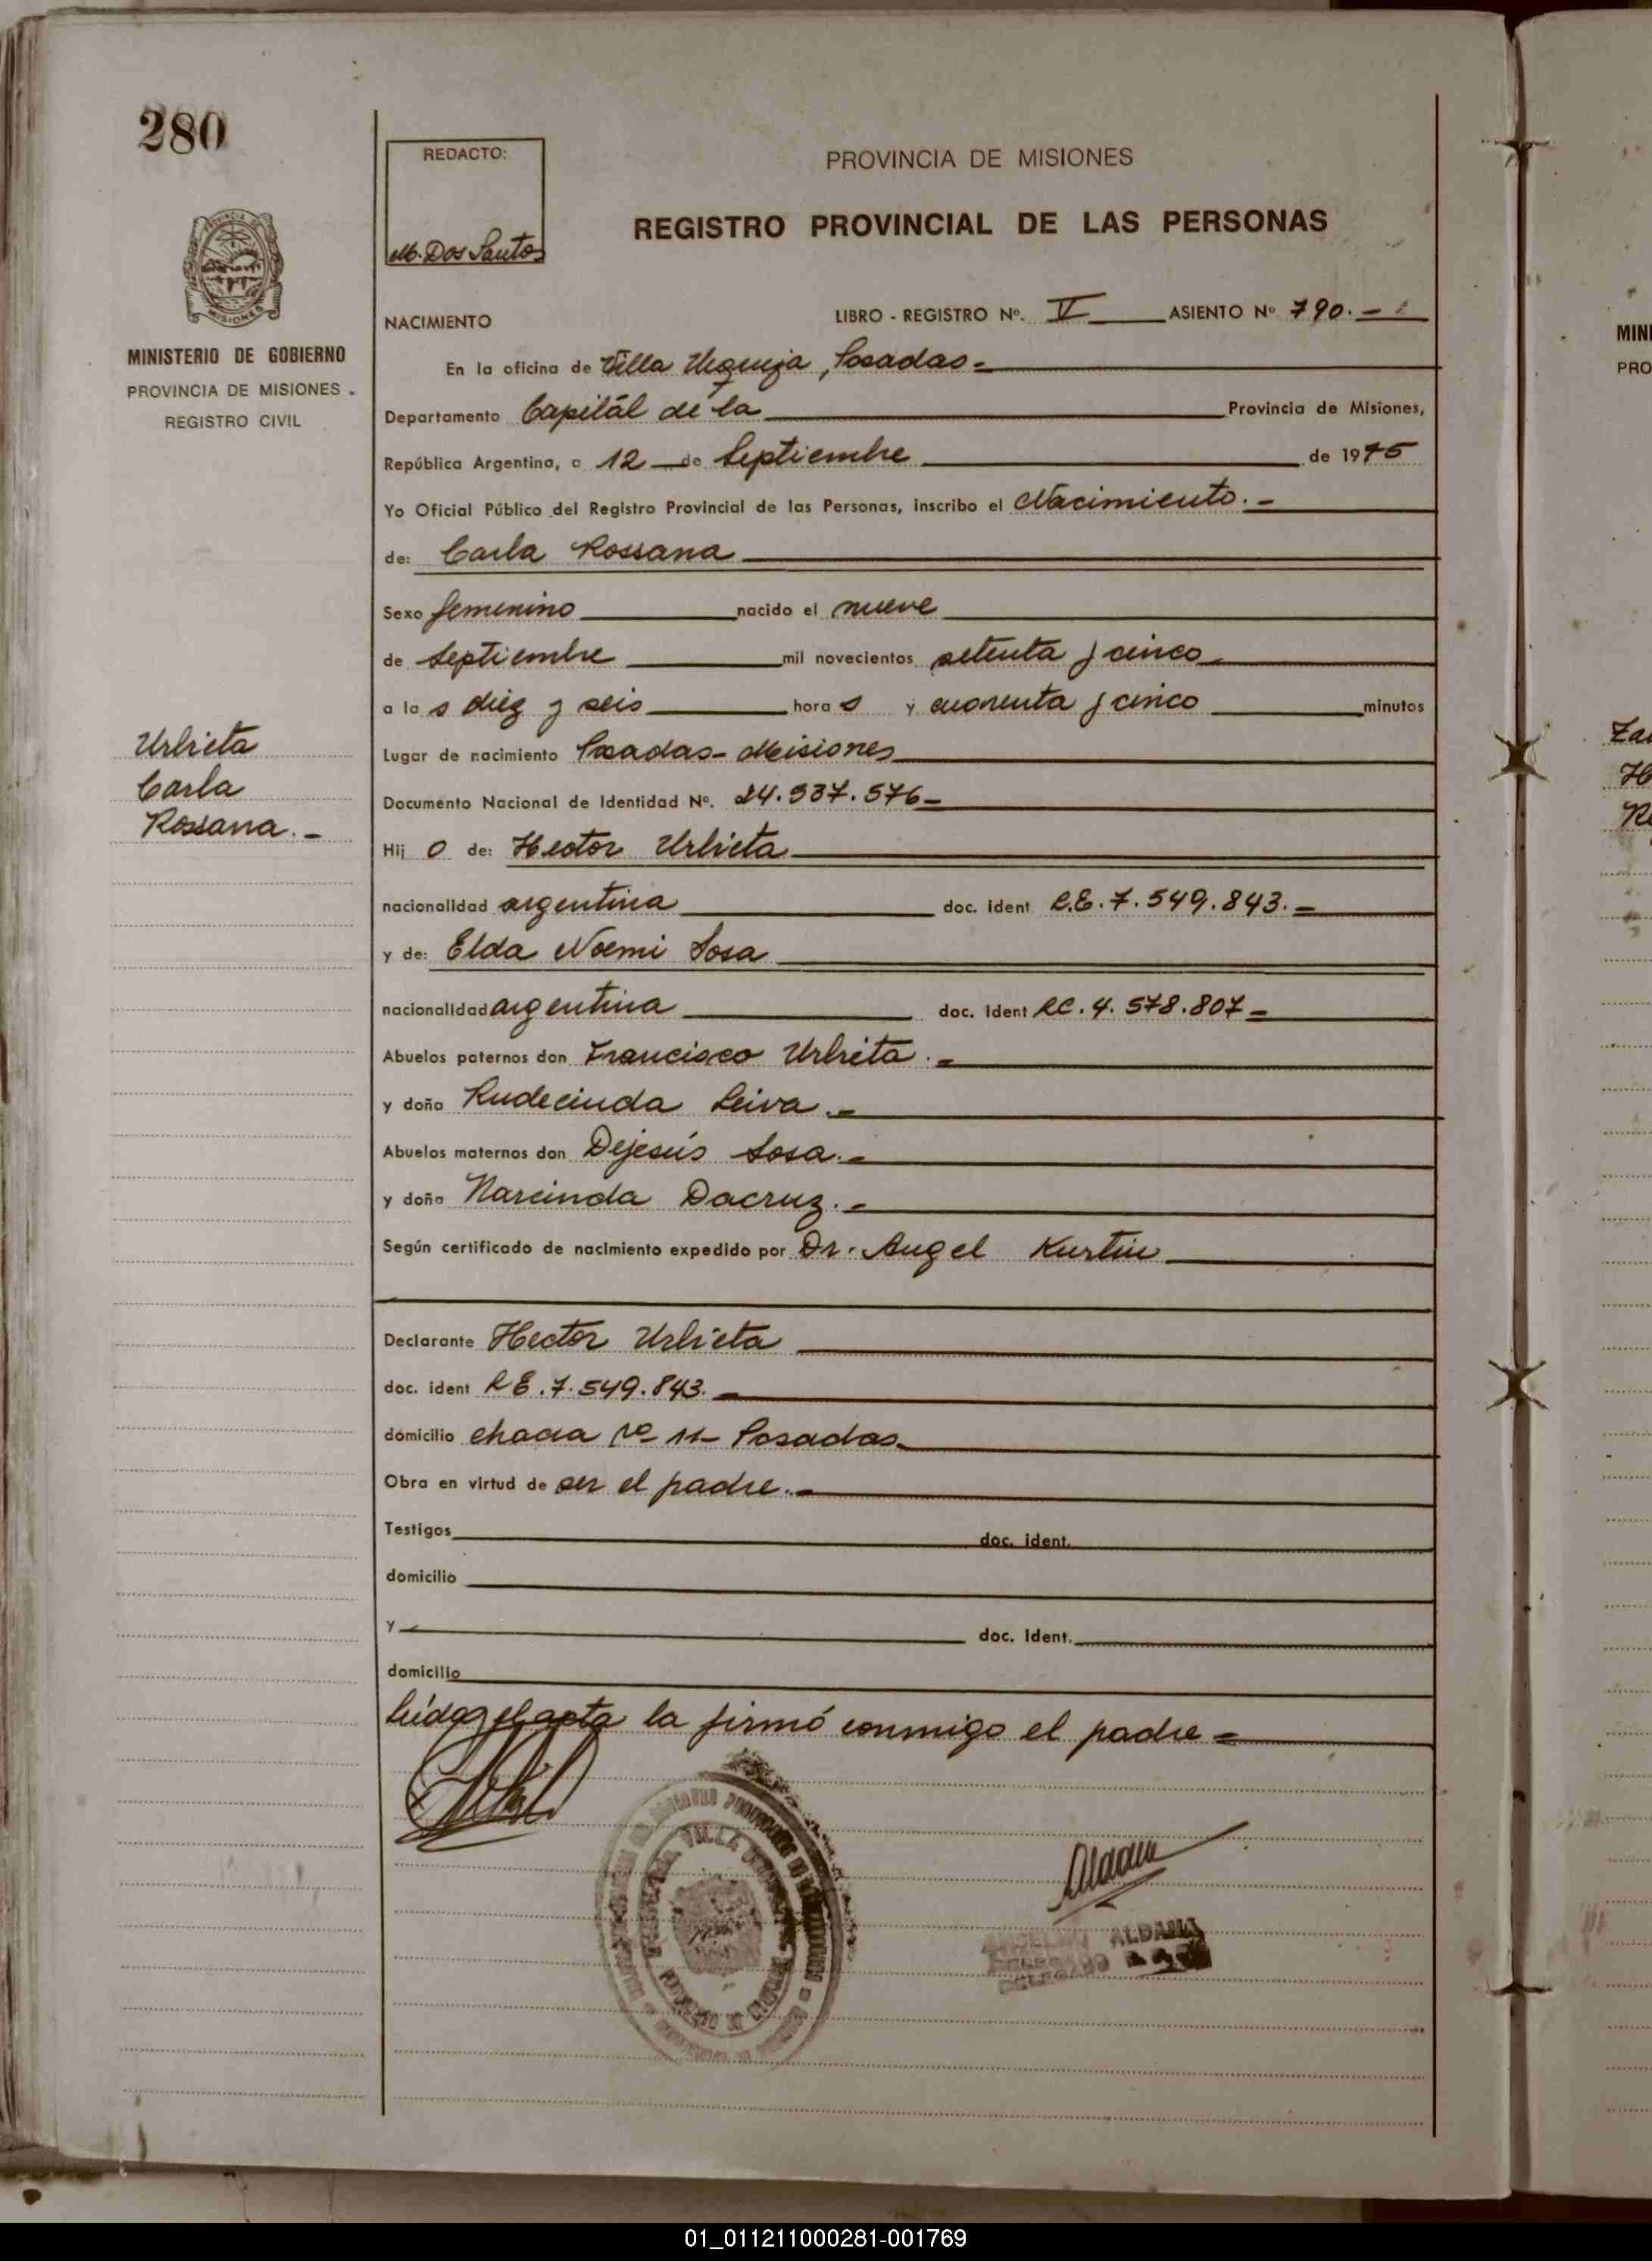 280
REDACTO:
M. Dos Santos
PROVINCIA DE MISIONES
REGISTRO PROVINCIAL DE LAS PERSONAS
MISIONES
MINISTERIO DE GOBIERNO
PROVINCIA DE MISIONES -
REGISTRO CIVIL
Urbieta
Carla
Rossana. -
NACIMIENTO LIBRO - REGISTRO Nº. V ASIENTO Nº 790. -
En la oficina de Villa Urquiza, Posadas -
Departamento Capitál de la Provincia de Misiones,
República Argentina, a 12 de Septiembre de 1975
Yo Oficial Público del Registro Provincial de las Personas, inscribo el Nacimiento. -
de: Carla Rossana
Sexo femenino nacido el nueve
de septiembre mil novecientos setenta y cinco
a la s diez y seis hora s y cuarenta y cinco minutos
Lugar de nacimiento Posadas - Misiones
Documento Nacional de Identidad Nº. 24.537.576 -
Hij o de: Hector Urbieta
nacionalidad argentina doc. ident L.E. 7.549.843. -
y de: Elda Noemi Sosa
nacionalidad argentina doc. ident LC. 4.578.807 -
Abuelos paternos don Francisco Urbieta. -
y doña Rudecinda Leiva. -
Abuelos maternos don Dejesús Sosa. -
y doña Narcinda Dacruz. -
Según certificado de nacimiento expedido por Dr. Angel Kurtin
Declarante Hector Urbieta
doc. ident LE. 7.549.843. -
domicilio chacra Nº 11 - Posadas
Obra en virtud de ser el padre. -
Testigos doc. ident.
domicilio
y doc. ident.
domicilio
Leída el acta la firmó conmigo el padre -
VILLA
ALDANA
DELEGADO
MINI
PRO
01_011211000281-001769